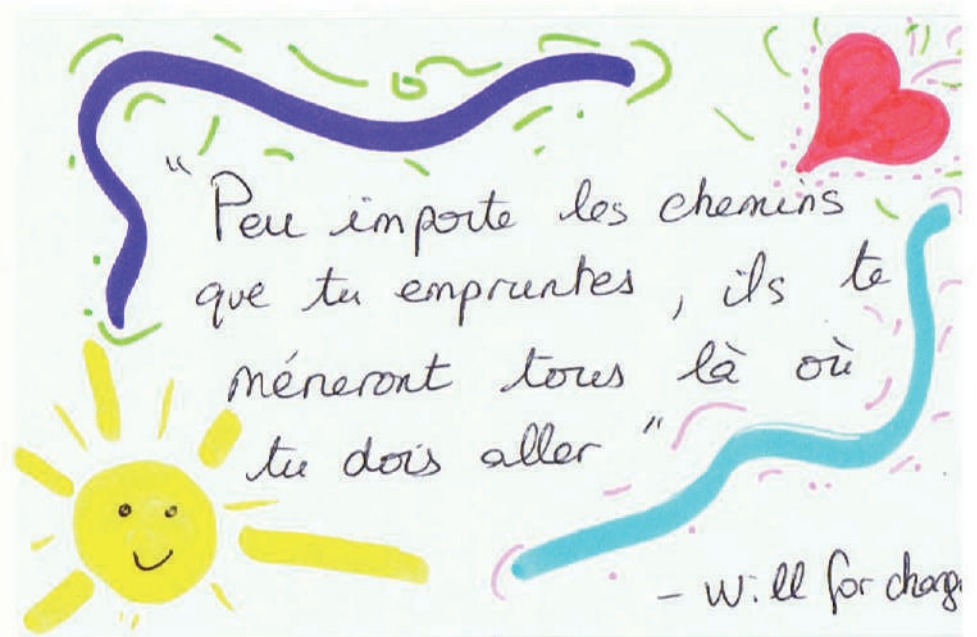 "Peu importe les chemins
que tu empruntes, ils te
méneront tous là où
tu dois aller"
- Will for